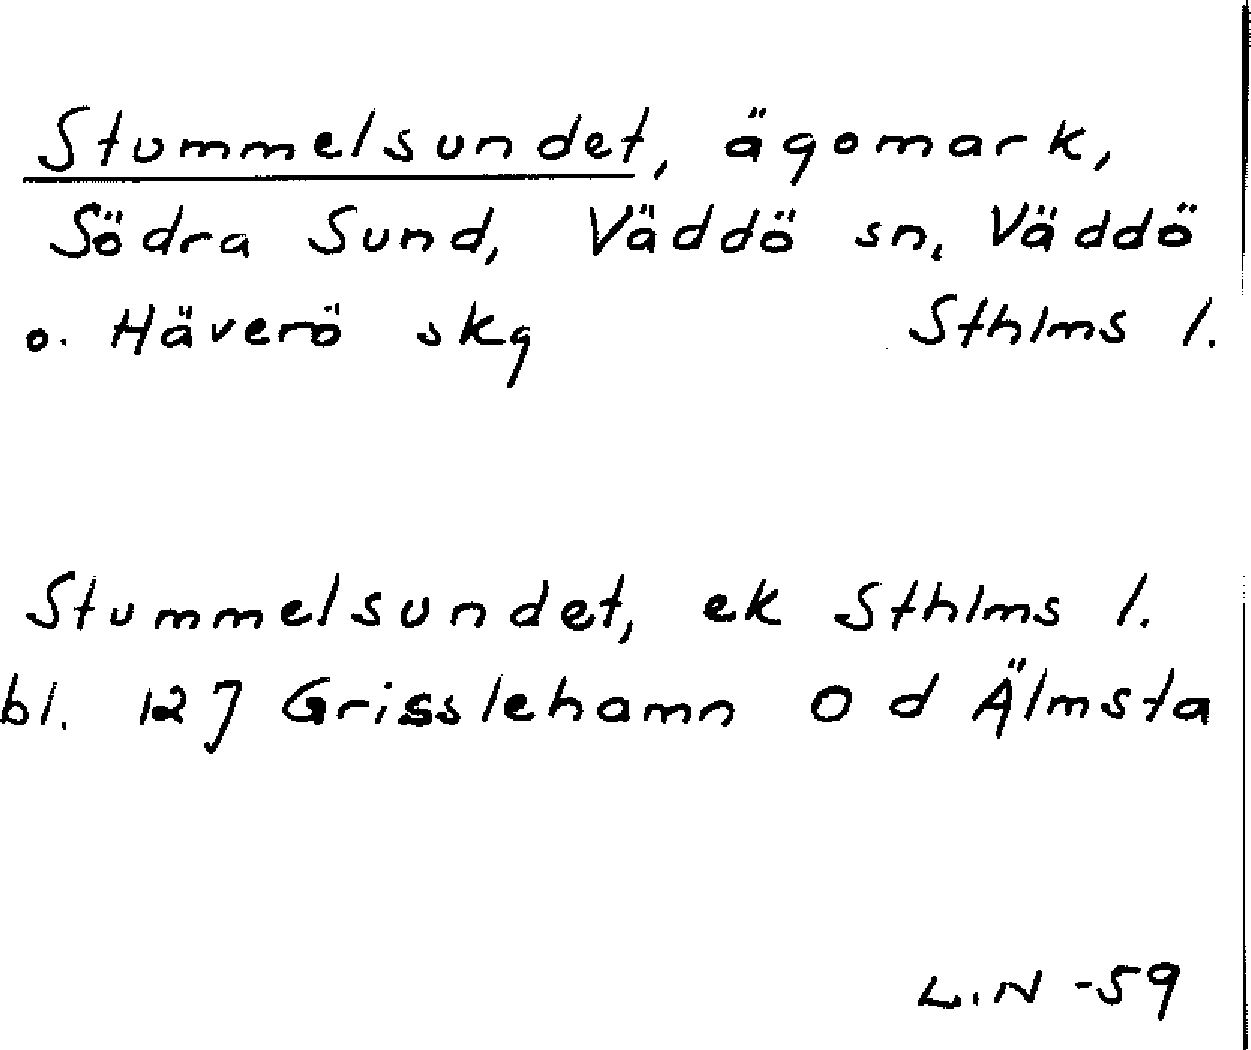 Stummelsundet, ägomark,
Södra Sund, Väddö sn, Väddö
o. Häverö skg Sthlms l.
Stummelsundet, ek Sthlms l.
bl. 12 J Grisslehamn O d Älmsta
L.N -59